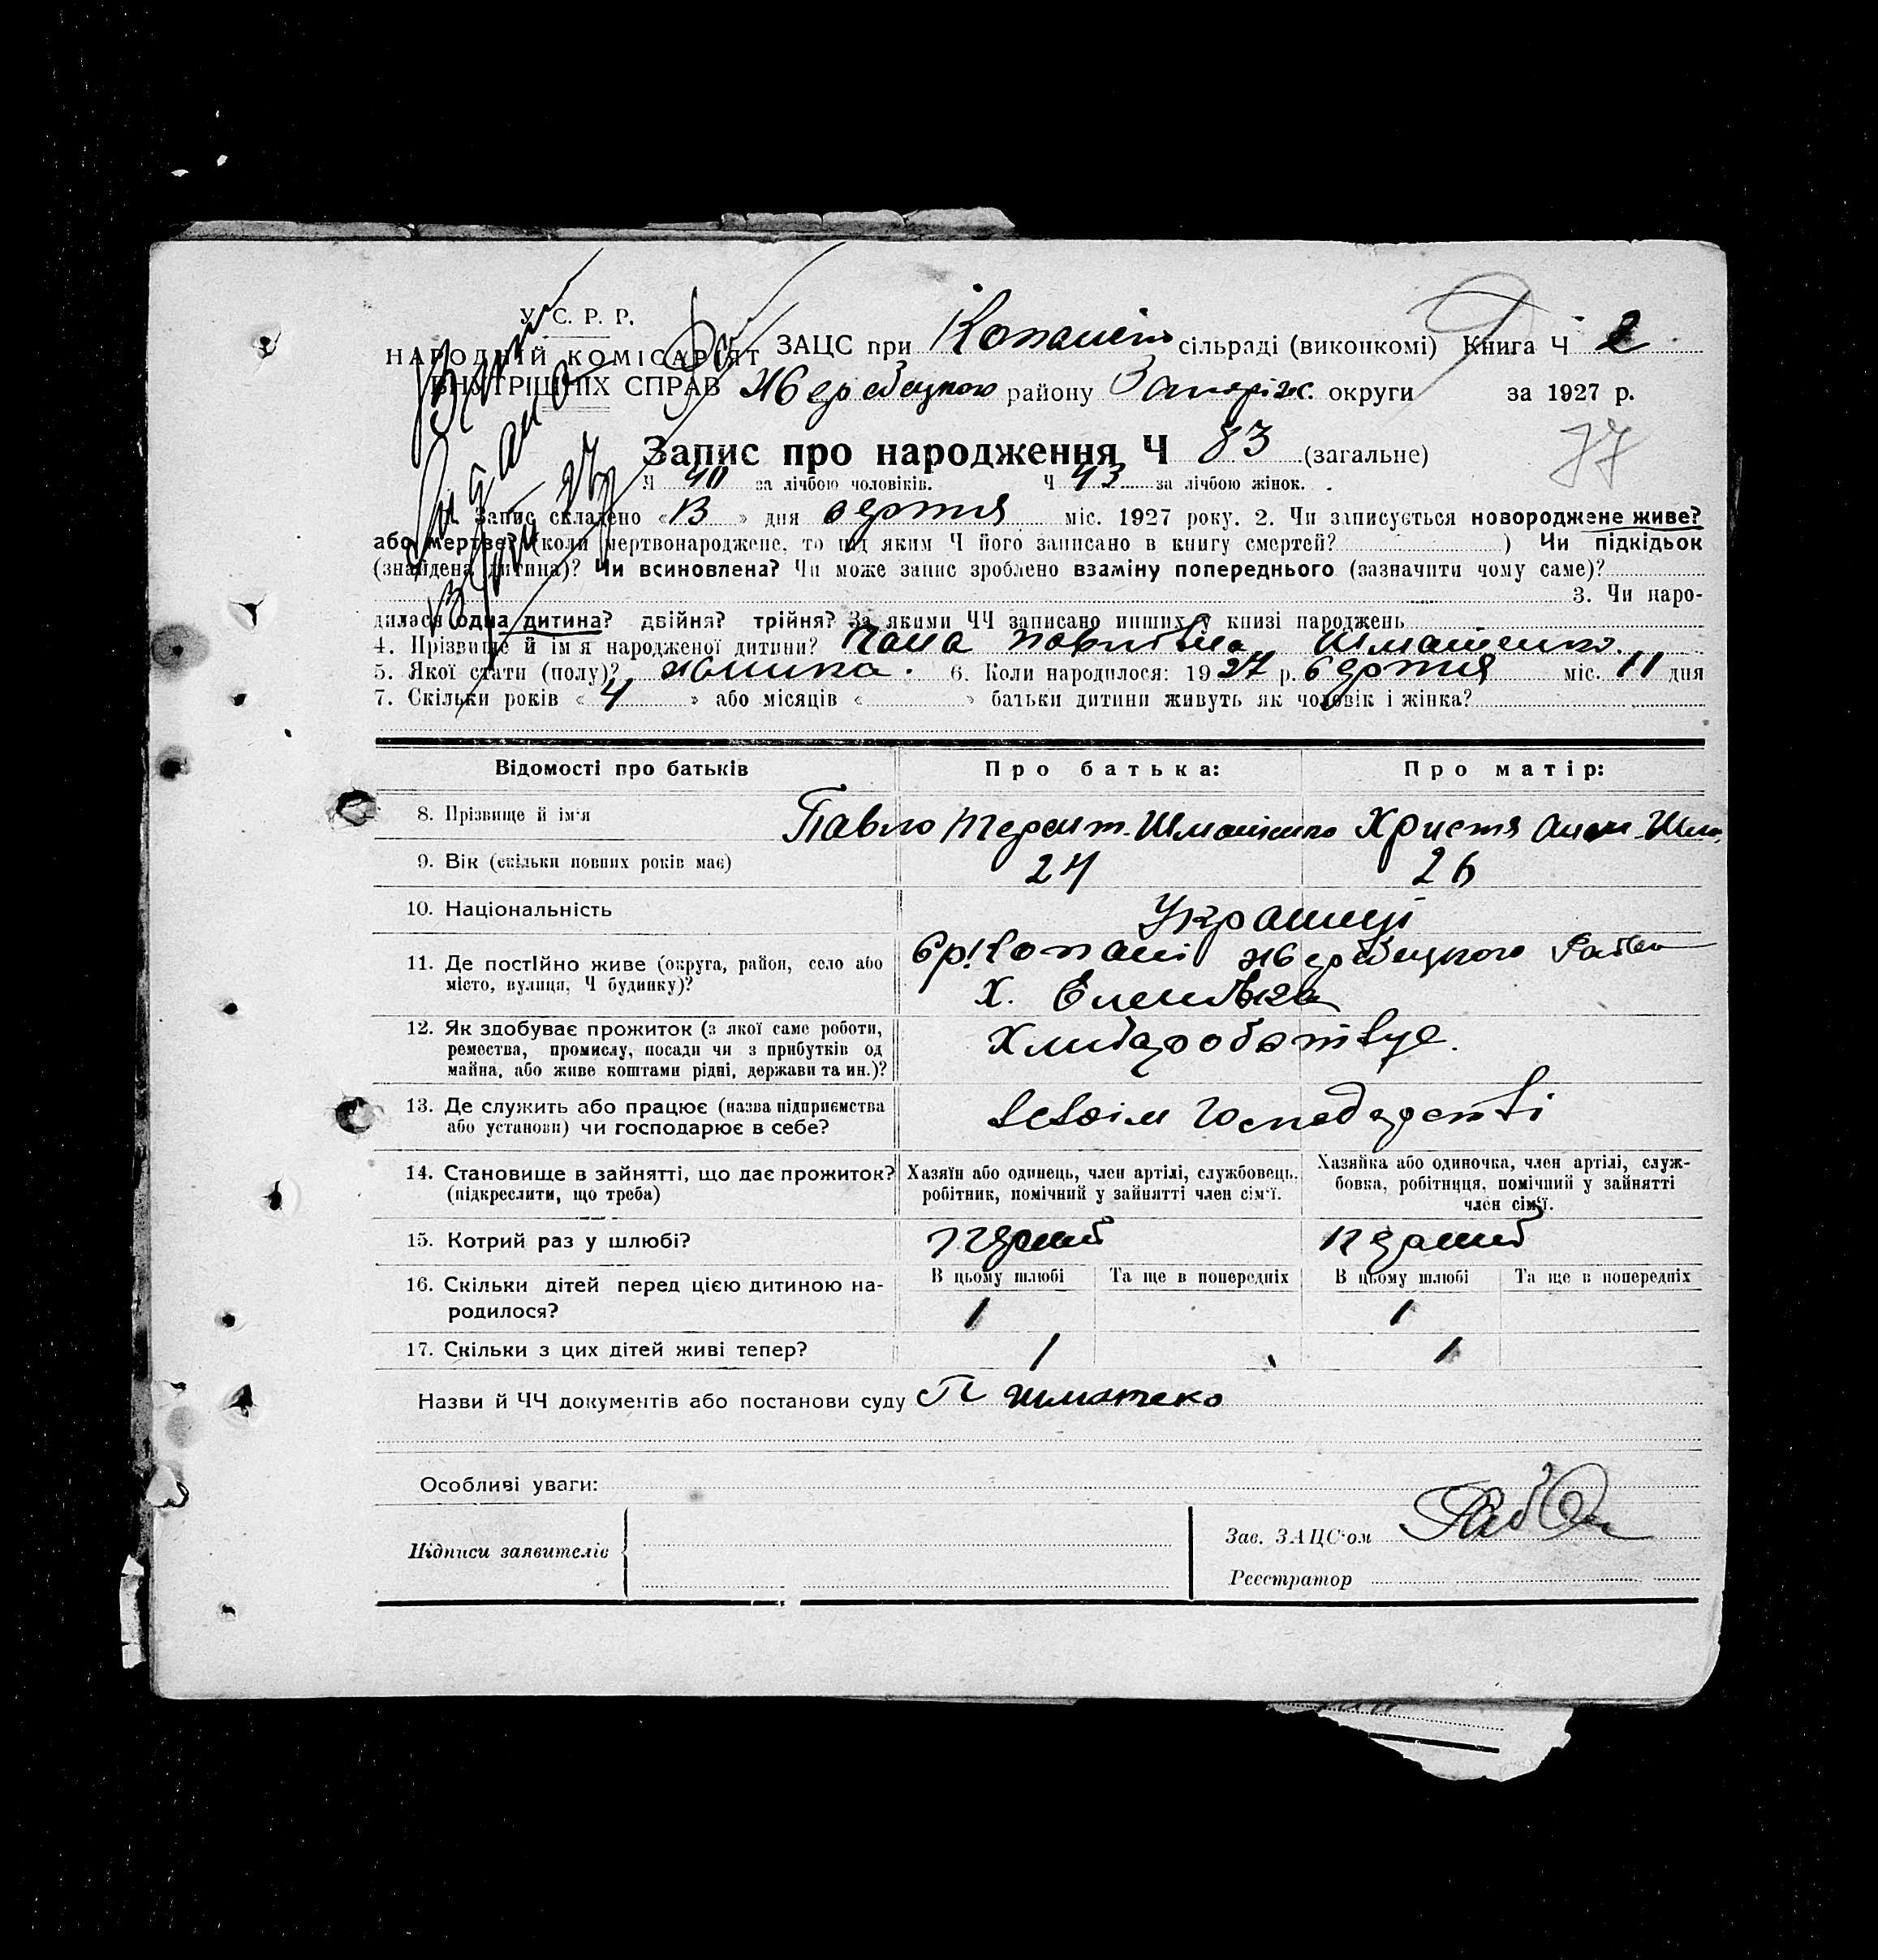 У. С. Р. Р.
НАРОДНІЙ КОМІСАРІЯТ
ВНУТРІШНІХ СПРАВ
ЗАЦС при Копанській сільраді (виконкомі) Книга Ч 2
Жеребецкого району Запоріж. округи за 1927 р.
Запис про народження Ч 83 (загальне)
77
Ч 40 за лічбою чоловіків. Ч 43 за лічбою жінок.
Запис складено « 13 » дня серпня міс. 1927 року. 2. Чи записується новороджене живе?
або мертве? (коли мертвонароджене, то під яким Ч його записано в книгу смертей? ) Чи підкідьок
(знайдена дитина)? Чи всиновлена? Чи може запис зроблено взаміну попереднього (зазначити чому саме)?
3. Чи наро-
дилася одна дитина? двійня? трійня? За якими ЧЧ записано инших у книзі народжень
4. Прізвище й ім'я народженої дитини? Павлівна Шматченко.
5. Якої стати (полу)? жіника. 6. Коли народилося: 1927 р. серпня міс. 11 дня
7. Скільки років « 4 » або місяців « » батьки дитини живуть як чоловік і жінка?
Відомості про батьків Про батька: Про матір:
8. Прізвище й ім'я Павло Терент. Христя
9. Вік (скільки повних років має) 24 26
10. Національність Українці
11. Де постійно живе (округа, район, село або місто, вулиця, Ч будинку)? Копані Жеребецкого Район
Х. Еленівка
12. Як здобуває прожиток (з якої саме роботи,
ремества, промислу, посади чи з прибутків од
майна, або живе коштами рідні, держави та ин.)?
13. Де служить або працює (назва підприємства
або установи) чи господарює в себе? всвоім господарстві
14. Становище в зайнятті, що дає прожиток?
(підкреслити, що треба)
Хазяїн або одинець, член артілі, службовець,
робітник, помічний у зайнятті член сім'ї.
Хазяйка або одиночка, член артілі, служ-
бовка, робітниця, помічний у зайнятті
член сім'ї.
15. Котрий раз у шлюбі?
16. Скільки дітей перед цією дитиною на-
родилося?
В цьому шлюбі Та ще в попередніх В цьому шлюбі Та ще в попередніх
1 1
17. Скільки з цих дітей живі тепер? 1 1
Назви й ЧЧ документів або постанови суду П Шматеко
Особливі уваги:
Підписи заявителів
Зав. ЗАЦС'ом
Реєстратор